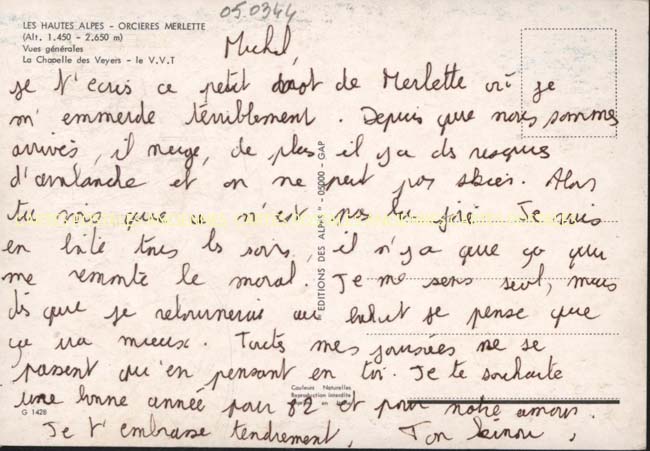 05.0344
LES HAUTES ALPES - ORCIERES MERLETTE
(Alt. 1.450 - 2.650 m)
Vues générales
La Chapelle des Veyers - le V.V.T
Michel,
je t'écris ce petit mot de Merlette où je
m'emmerde térriblement. Depuis que nous sommes
arrivés, il neige, de plus il y a ds risques
d'avalanche et on ne peut pas skier. Alors
tu vois que ce n'est pas la joie. Je vais
en boîte tous ls soirs, il n'y a que ça qui
me remonte le moral. Je me sens seul, mais
dès que je retournerai au je pense que
ça ira mieux. Toutes mes journées ne se
passent qu'en pensant en toi. Je te souhaite
une bonne année pour 82 et pour notre amour.
Je t'embrasse tendrement, Ton
"EDITIONS DES ALPES" - 05000 - GAP
Couleurs Naturelles
Reproduction interdite
G 1428